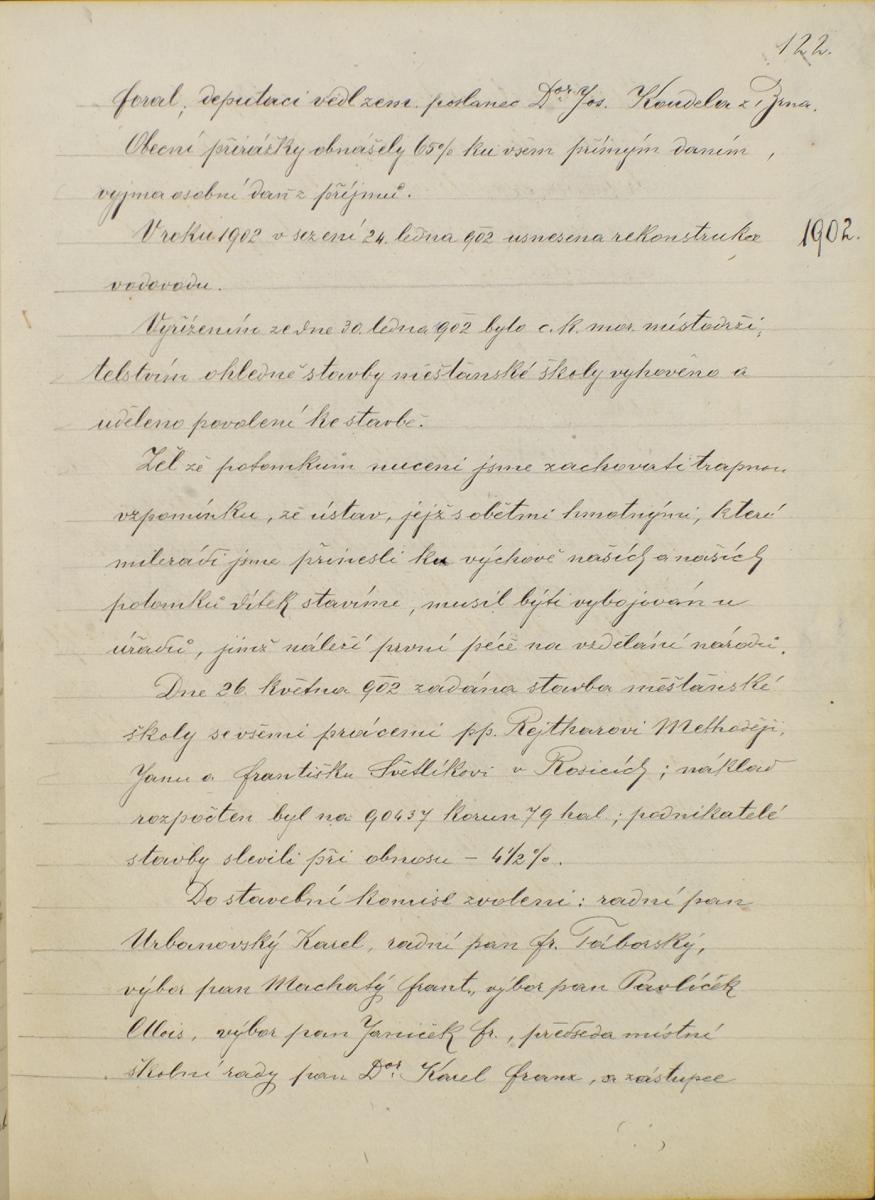 122.
Foral; deputaci vedl zem. poslanec Dor. Jos. Koudela z Brna.
Obecní přirážky obnášely 65% ku všem přímým daním,
vyjma osobní daň z příjmů.
V roku 1902 v sezení 24. ledna 902 usnesena rekonstrukce
1902.
vodovodu.
Vyřízením ze dne 30. ledna 902 bylo c. k. mor. místodrži-
telstvím ohledně stavby měšťanské školy vyhověno a
uděleno povolení ke stavbě.
Žel že potomkům nuceni jsme zachovati trapnou
vzpomínku, že ústav, jejž s obětmi hmotnými, které
milerádi jsme přinesli ku výchově našich a našich
potomků dítek stavíme, musil býti vybojován u
úřadů, jimž náleží první péče na vzdělání národů.
Dne 26. května 902 zadána stavba měšťanské
školy se všemi pracemi pp. Rejtharovi Methoději,
Janu a Františku Světlíkovi v Rosicích; náklad
rozpočten byl na 90437 korun 79 hal.; podnikatelé
stavby slevili při obnosu – 4 1/2 %.
Do stavební komise zvoleni: radní pan
Urbanovský Karel, radní pan Fr. Táborský,
výbor pan Machatý Frant., výbor pan Pavlíček
Alois, výbor pan Janíček Fr., předseda místní
školní rady pan Dor. Karel Franz, a zástupce